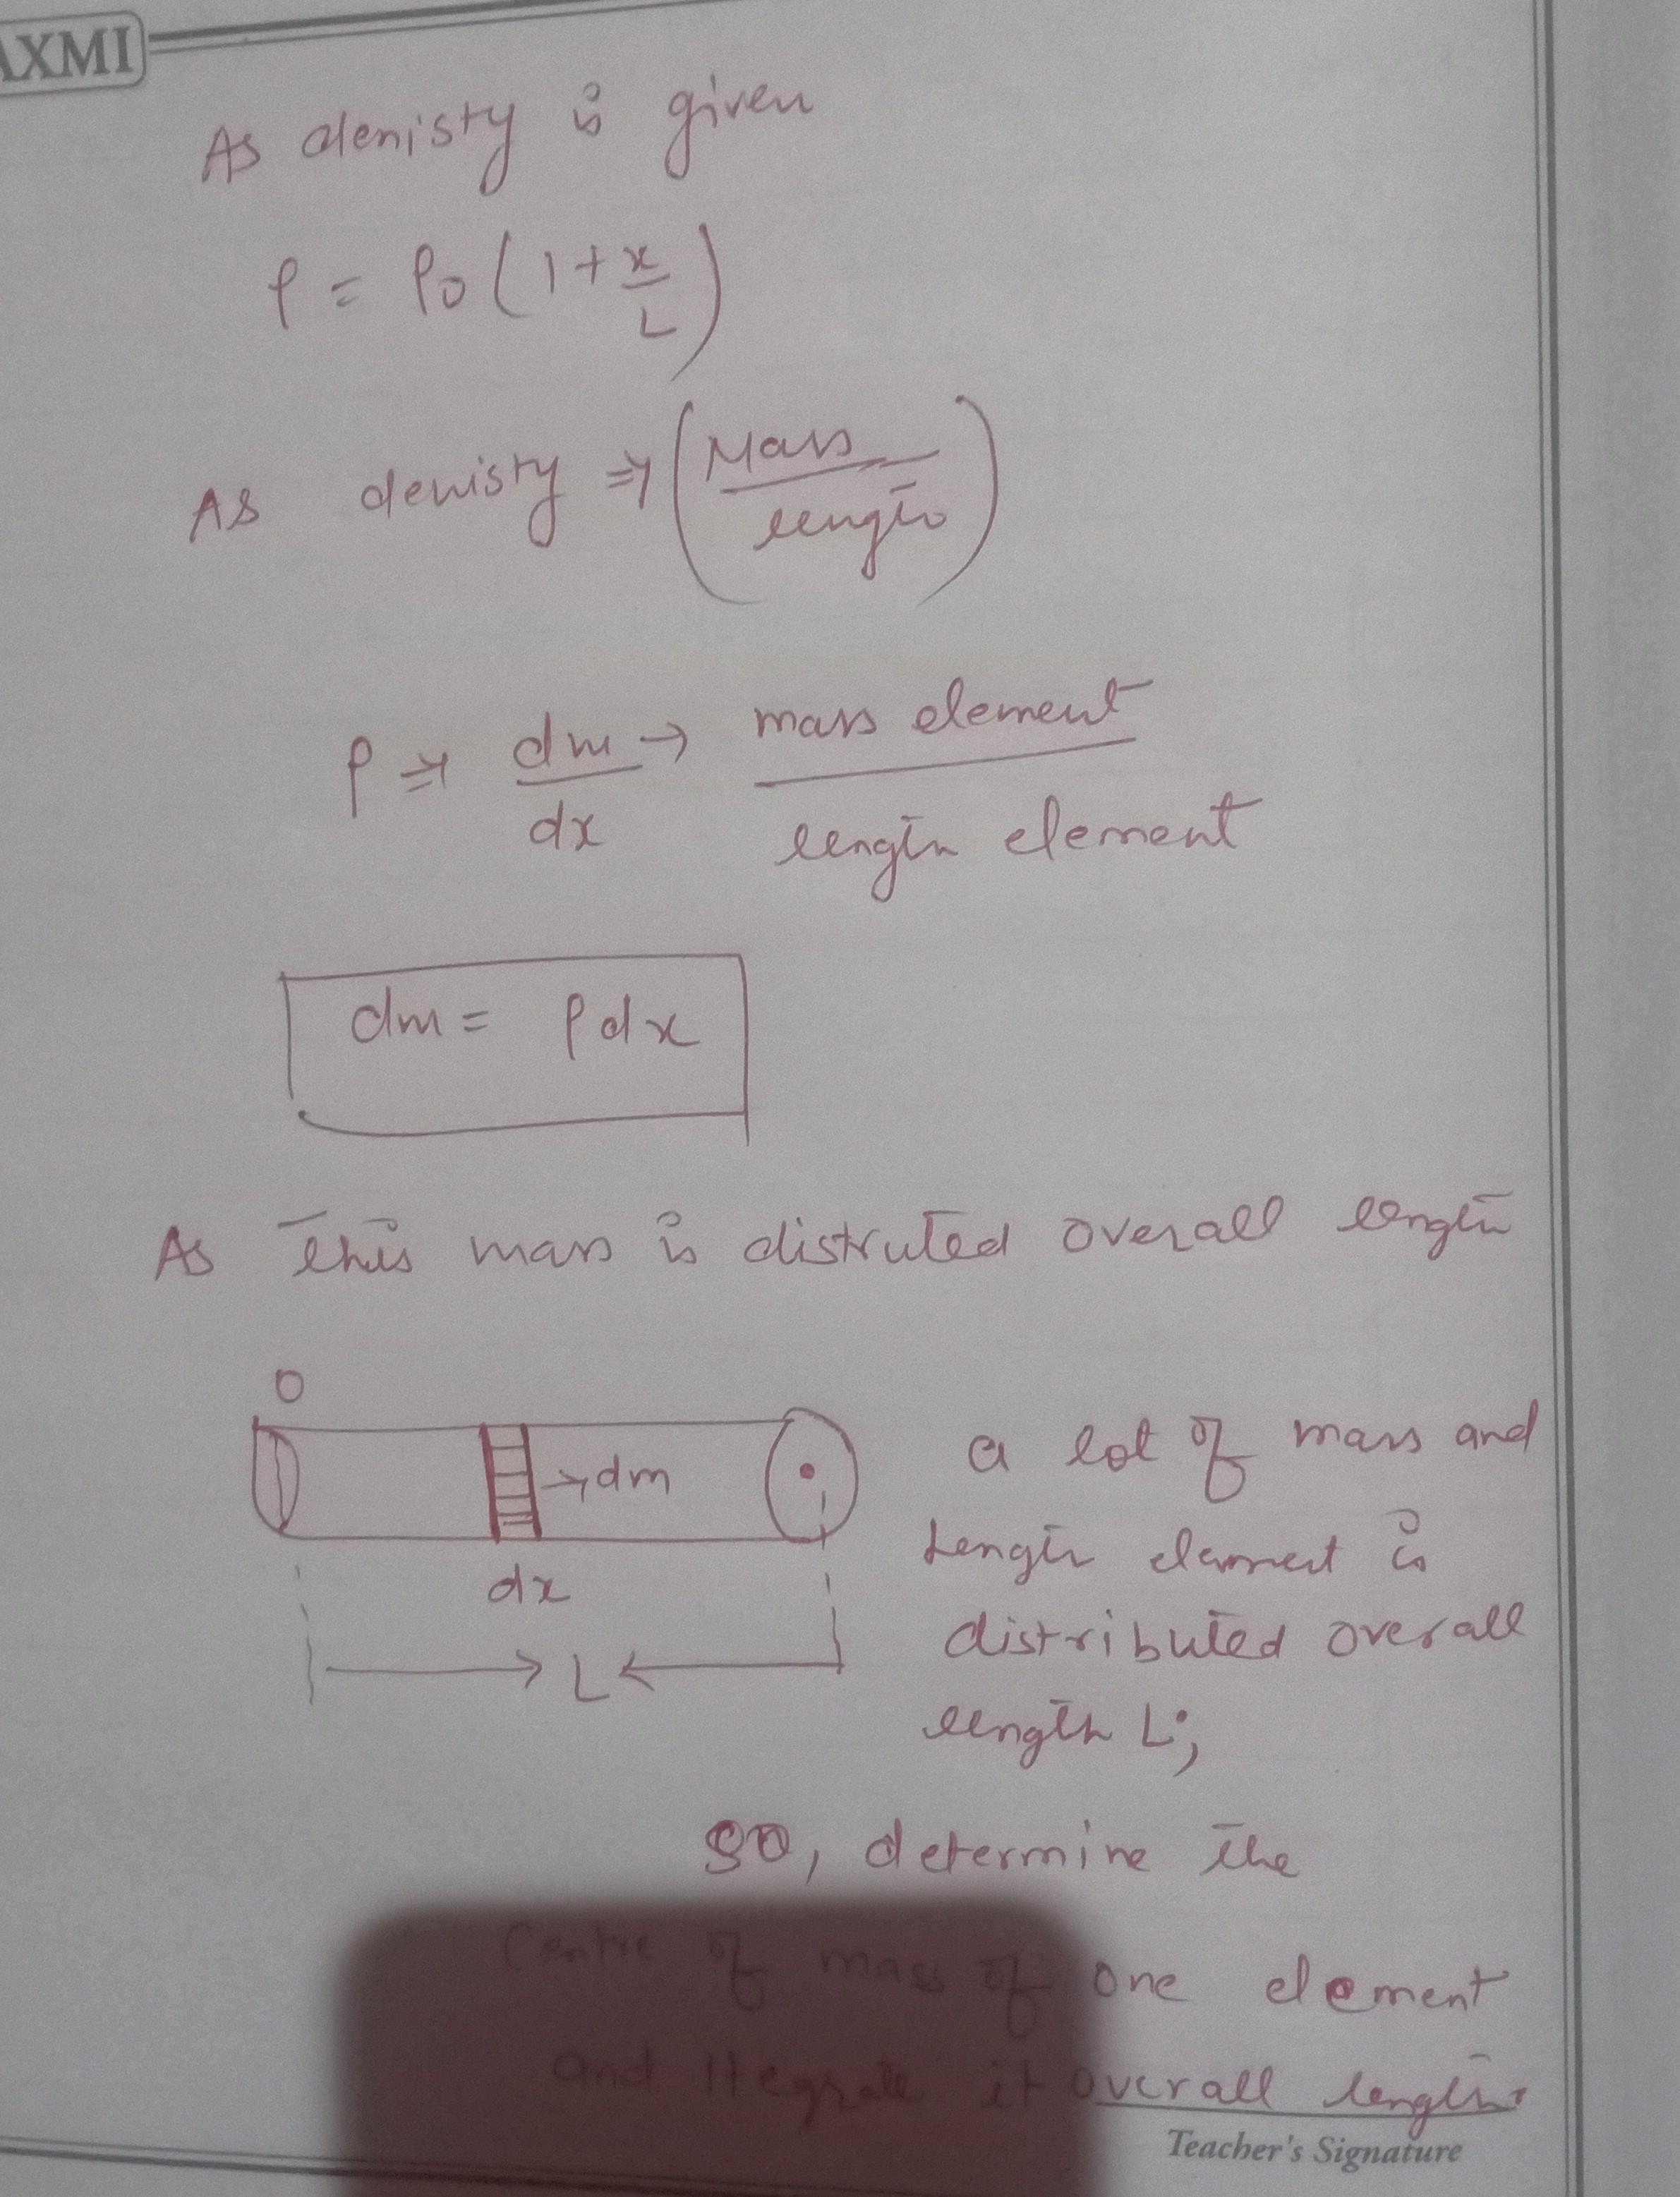 AXMI
As denisty is given
ρ = ρ0 (1 + x/L)
As denisty ⇒ (Mass/length)
ρ ⇒ dm/dx → mass element/length element
dm = ρdx
As this mass is distruted overall length
O
→dm
dx
L
a lot of mass and
Length element is
distributed overall
length L;
SO, determine the
Centre of mass of one element
and Itegrate it overall length.
Teacher's Signature